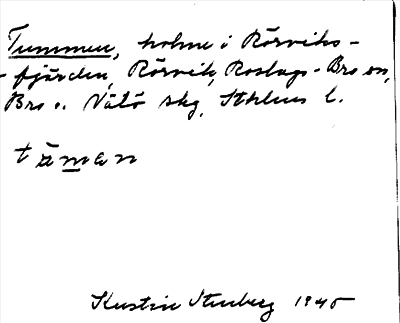 Tummen, holme i Rörviks-
-fjärden, Rörvik, Roslags-Bro sn,
Bro o. Vätö skg, Sthlms l.
täman
Kerstin Stenberg 1945